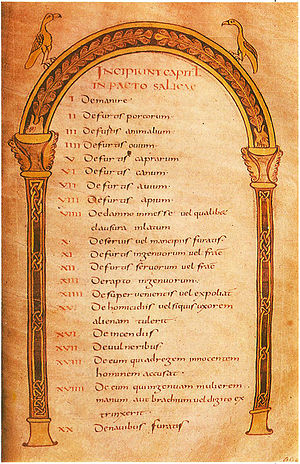 INCIPIUNT CAPITL
IN PACTO SALICAE
I De manire
II De furtis porcorum
III De furtis animalium
IIII De furtis ovium
V De furtis caprarum
VI De furtis canum
VII De furtis avium
VIII De furtis apium
VIIII De damno in messe vel qualibet
clausura inlatum
X De servis vel mancipiis furatis
XI De furtis ingenuorum vel frac
XII De furtis servorum vel frac
XIII De rapto ingenuorum
XIIII De super venientis vel expoliat
XV De homicidis vel siquis uxorem
alienam tulerit
XVI De incendiis
XVII De vulneribus
XVIII De eum qui ad regem innocentem
hominem accusat
XVIIII De eum qui ingenuam mulierem
manum aut brachium vel digito ex
trinxerit
XX De navibus furatis